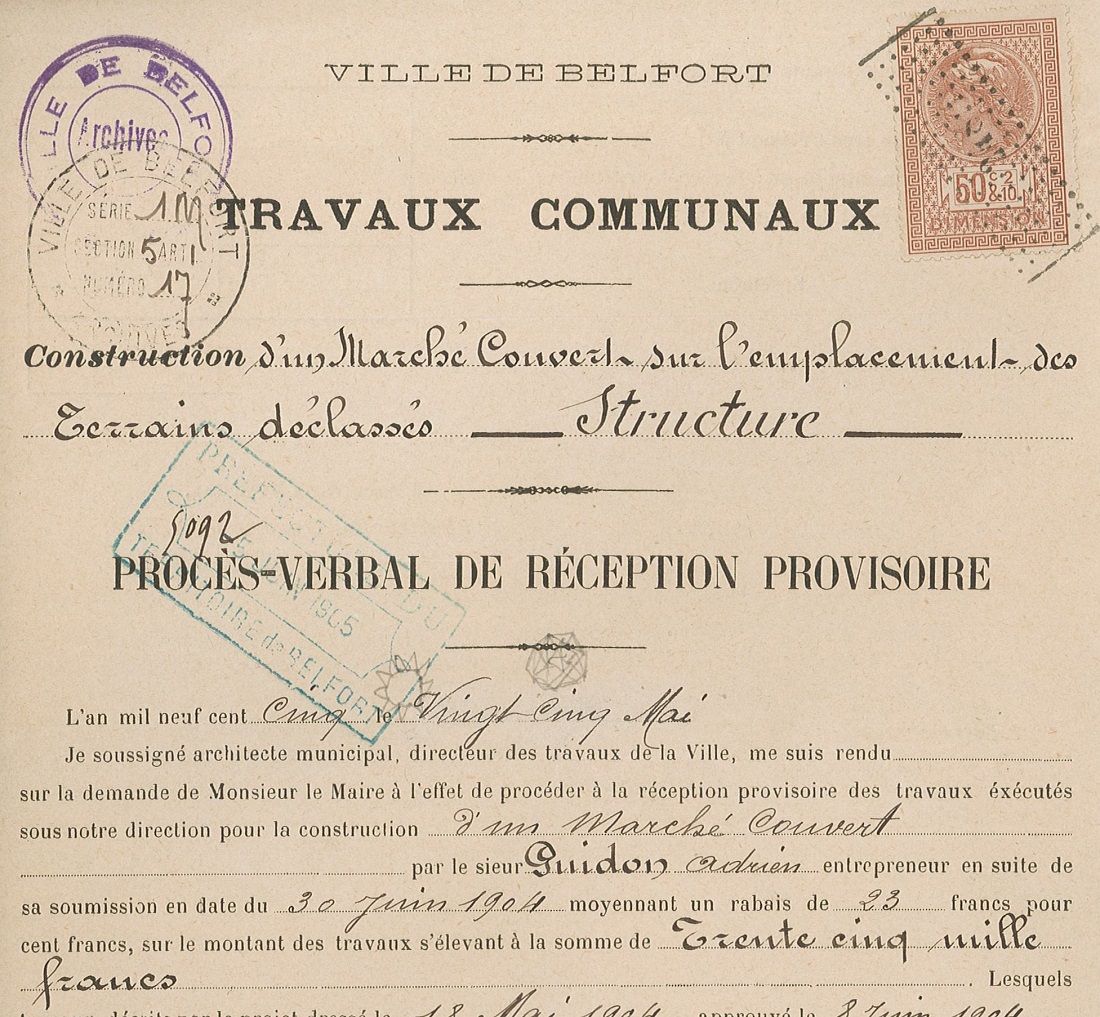 VILLE DE BELFORT
VILLE DE BELFO
Archives
VILLE DE BELFORT
SÉRIE 1M
SECTION 5 ART 1
NUMÉRO 17
ARCHIVES
50 c 2 & 10
DIMENSION
TRAVAUX COMMUNAUX
Construction d'un Marché Couvert sur l'emplacement des
Terrains déclassés Structure
PREFECTURE DU
5092
JUIN 1905
TERRITOIRE de BELFORT
PROCÈS-VERBAL DE RÉCEPTION PROVISOIRE
L'an mil neuf cent cinq le Vingt Cinq Mai
Je soussigné architecte municipal, directeur des travaux de la Ville, me suis rendu
sur la demande de Monsieur le Maire à l'effet de procéder à la réception provisoire des travaux éxécutés
sous notre direction pour la construction d'un Marché Couvert
par le sieur Guidon Adrien entrepreneur en suite de
sa soumission en date du 30 Juin 1904 moyennant un rabais de 23 francs pour
cent francs, sur le montant des travaux s'élevant à la somme de Trente cinq mille
francs. Lesquels
décrits par le projet dressé le 18 Mai 1904 approuvé le 8 Juin 1904